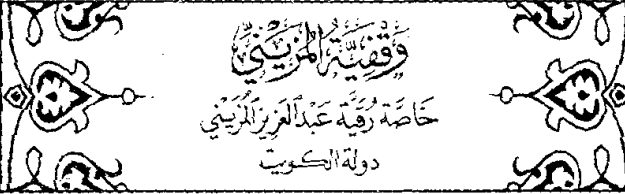 وَقْفِيَّة المُزَيْنِيّ
خَاصَّة رُقَيَّة عَبْدالعَزِيز المُزَيْنِي
دولة الكويت